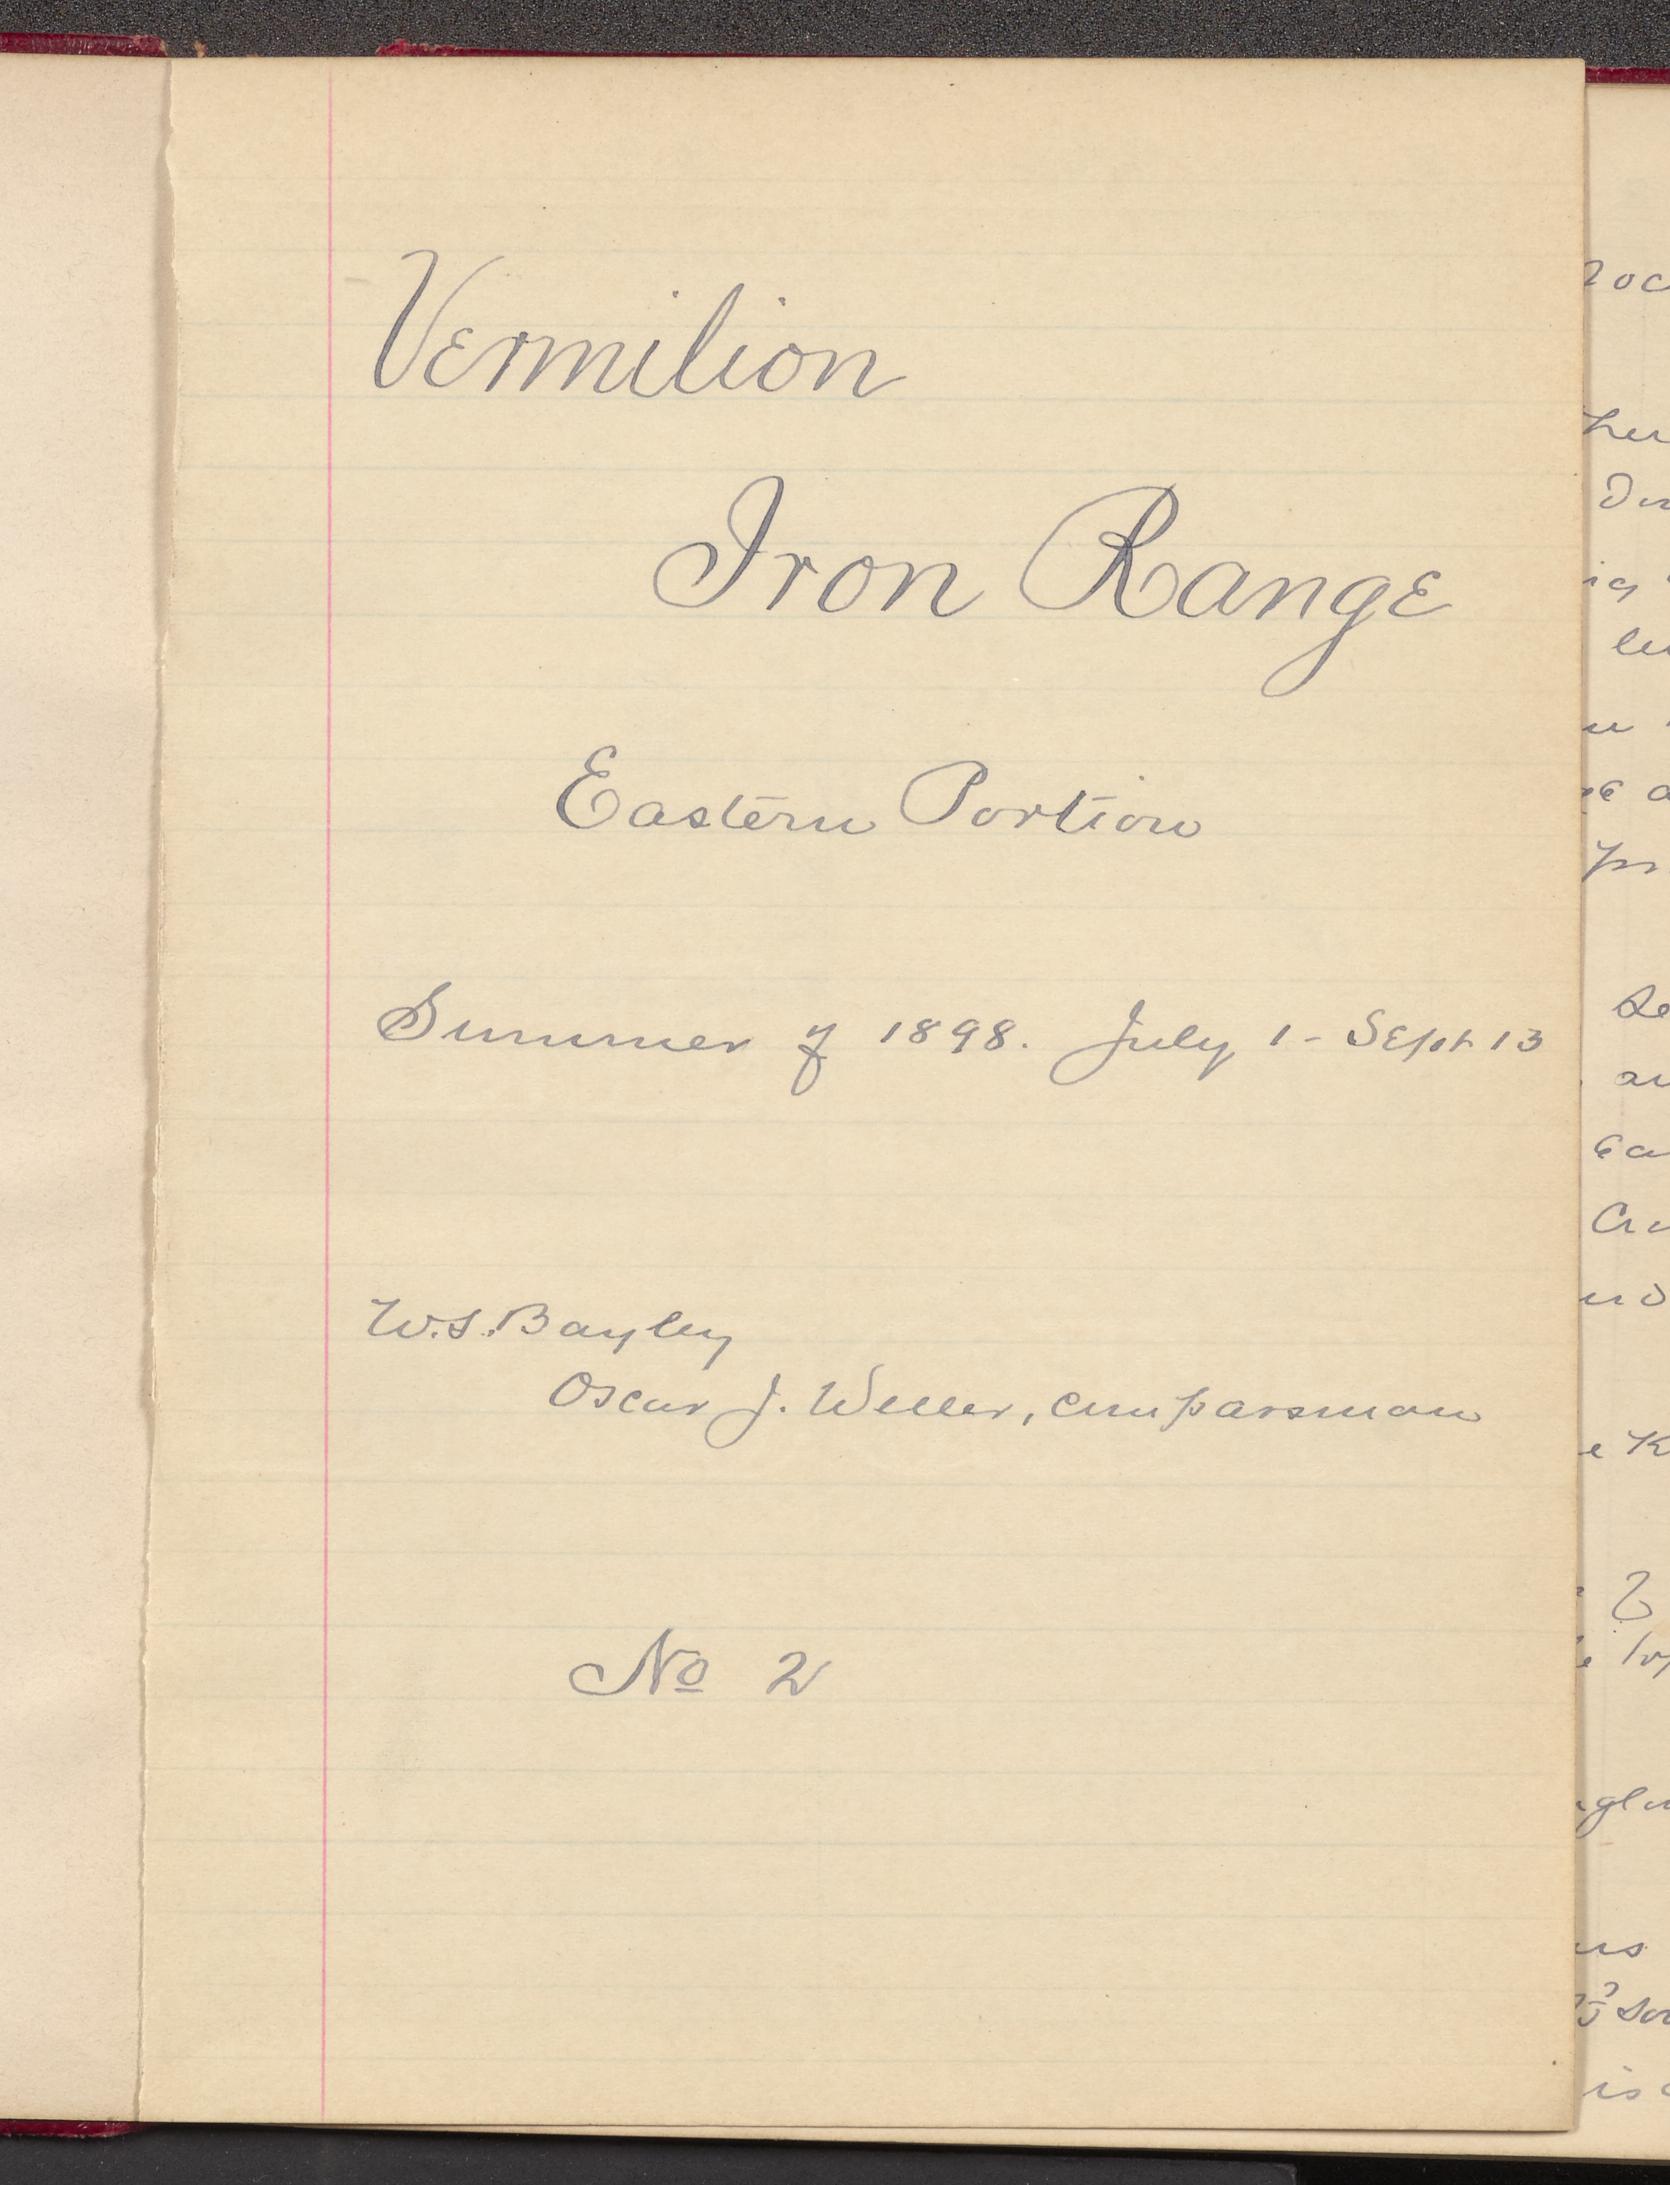 Vermilion
Iron Range
Eastern Portion
Summer of 1898. July 1 - Sept 13
W.S. Bayley
Oscar J. Weller, compassman
No 2